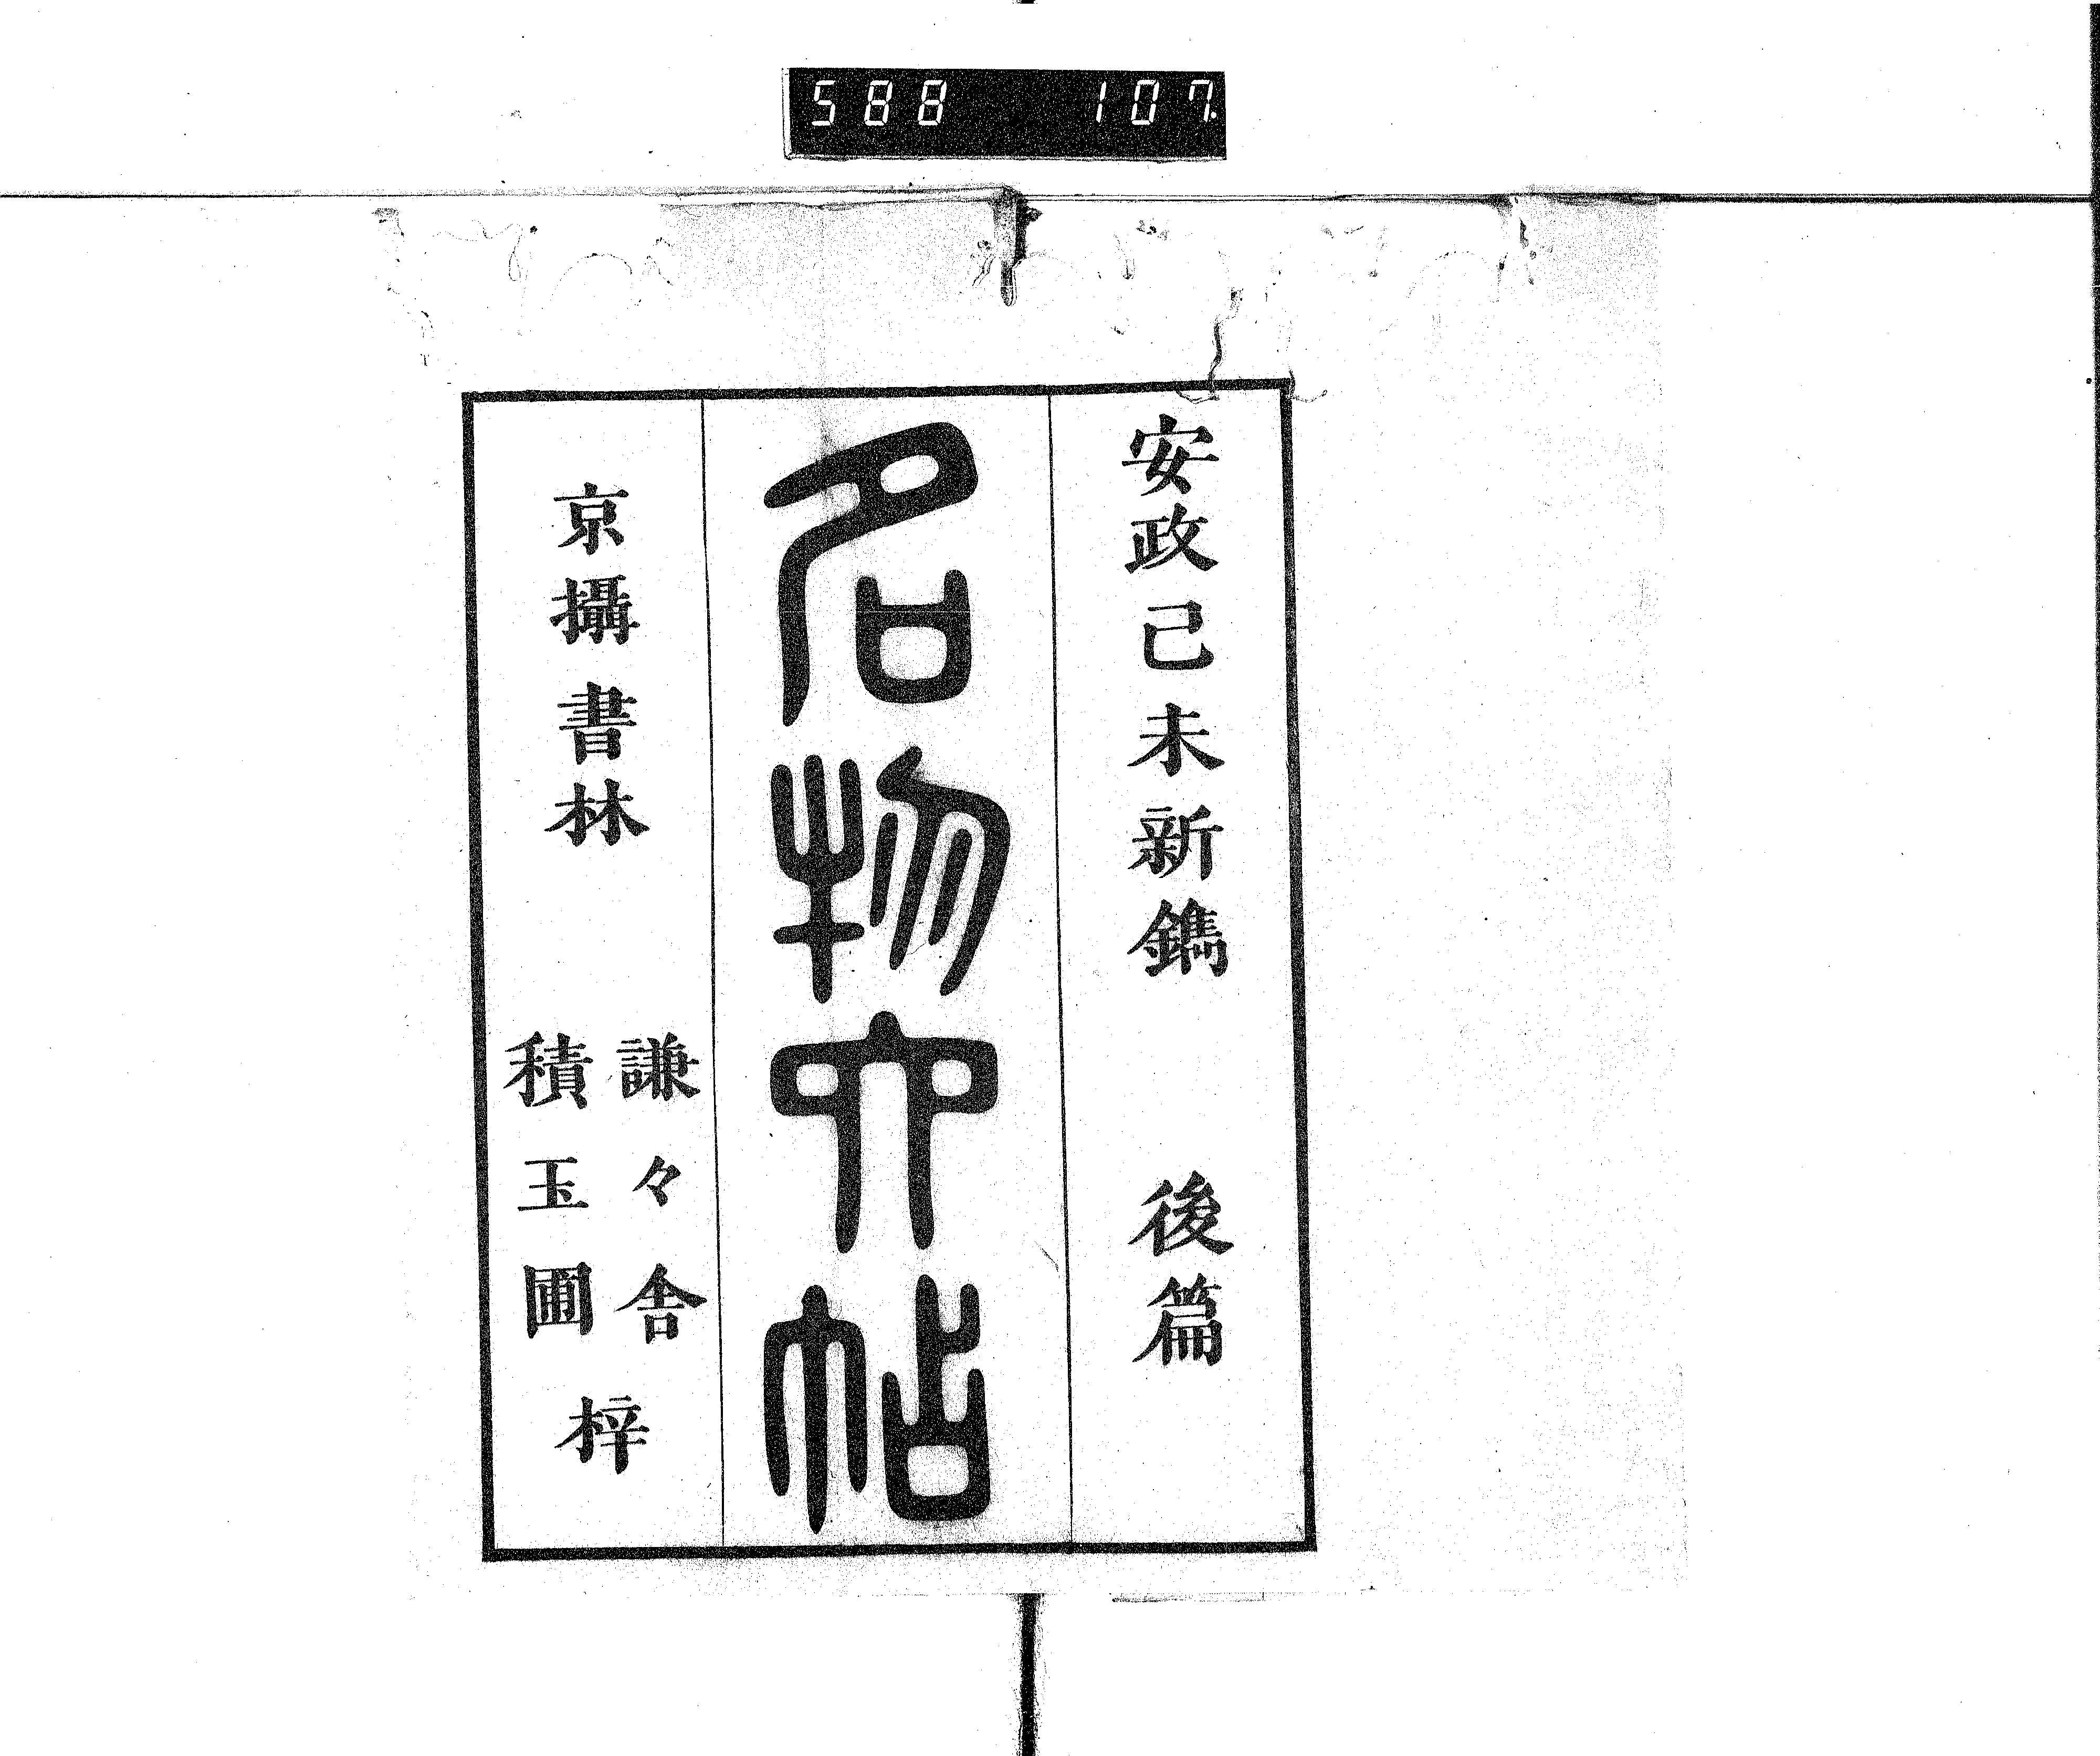 588 107
安政己未新鐫 後篇
名物六帖
京攝書林
謙々舎
積玉圃
梓